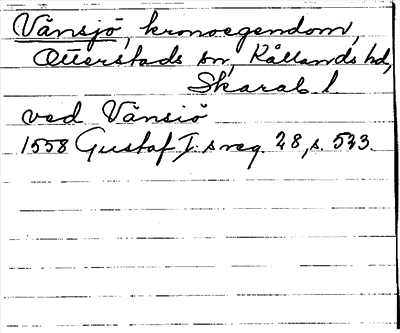 Vänsjö, kronoegendom,
Otterstads sn, Kållands hd,
Skarab. l.
ved Vänsiö
1558 Gustaf I:s reg. 28, s. 533.